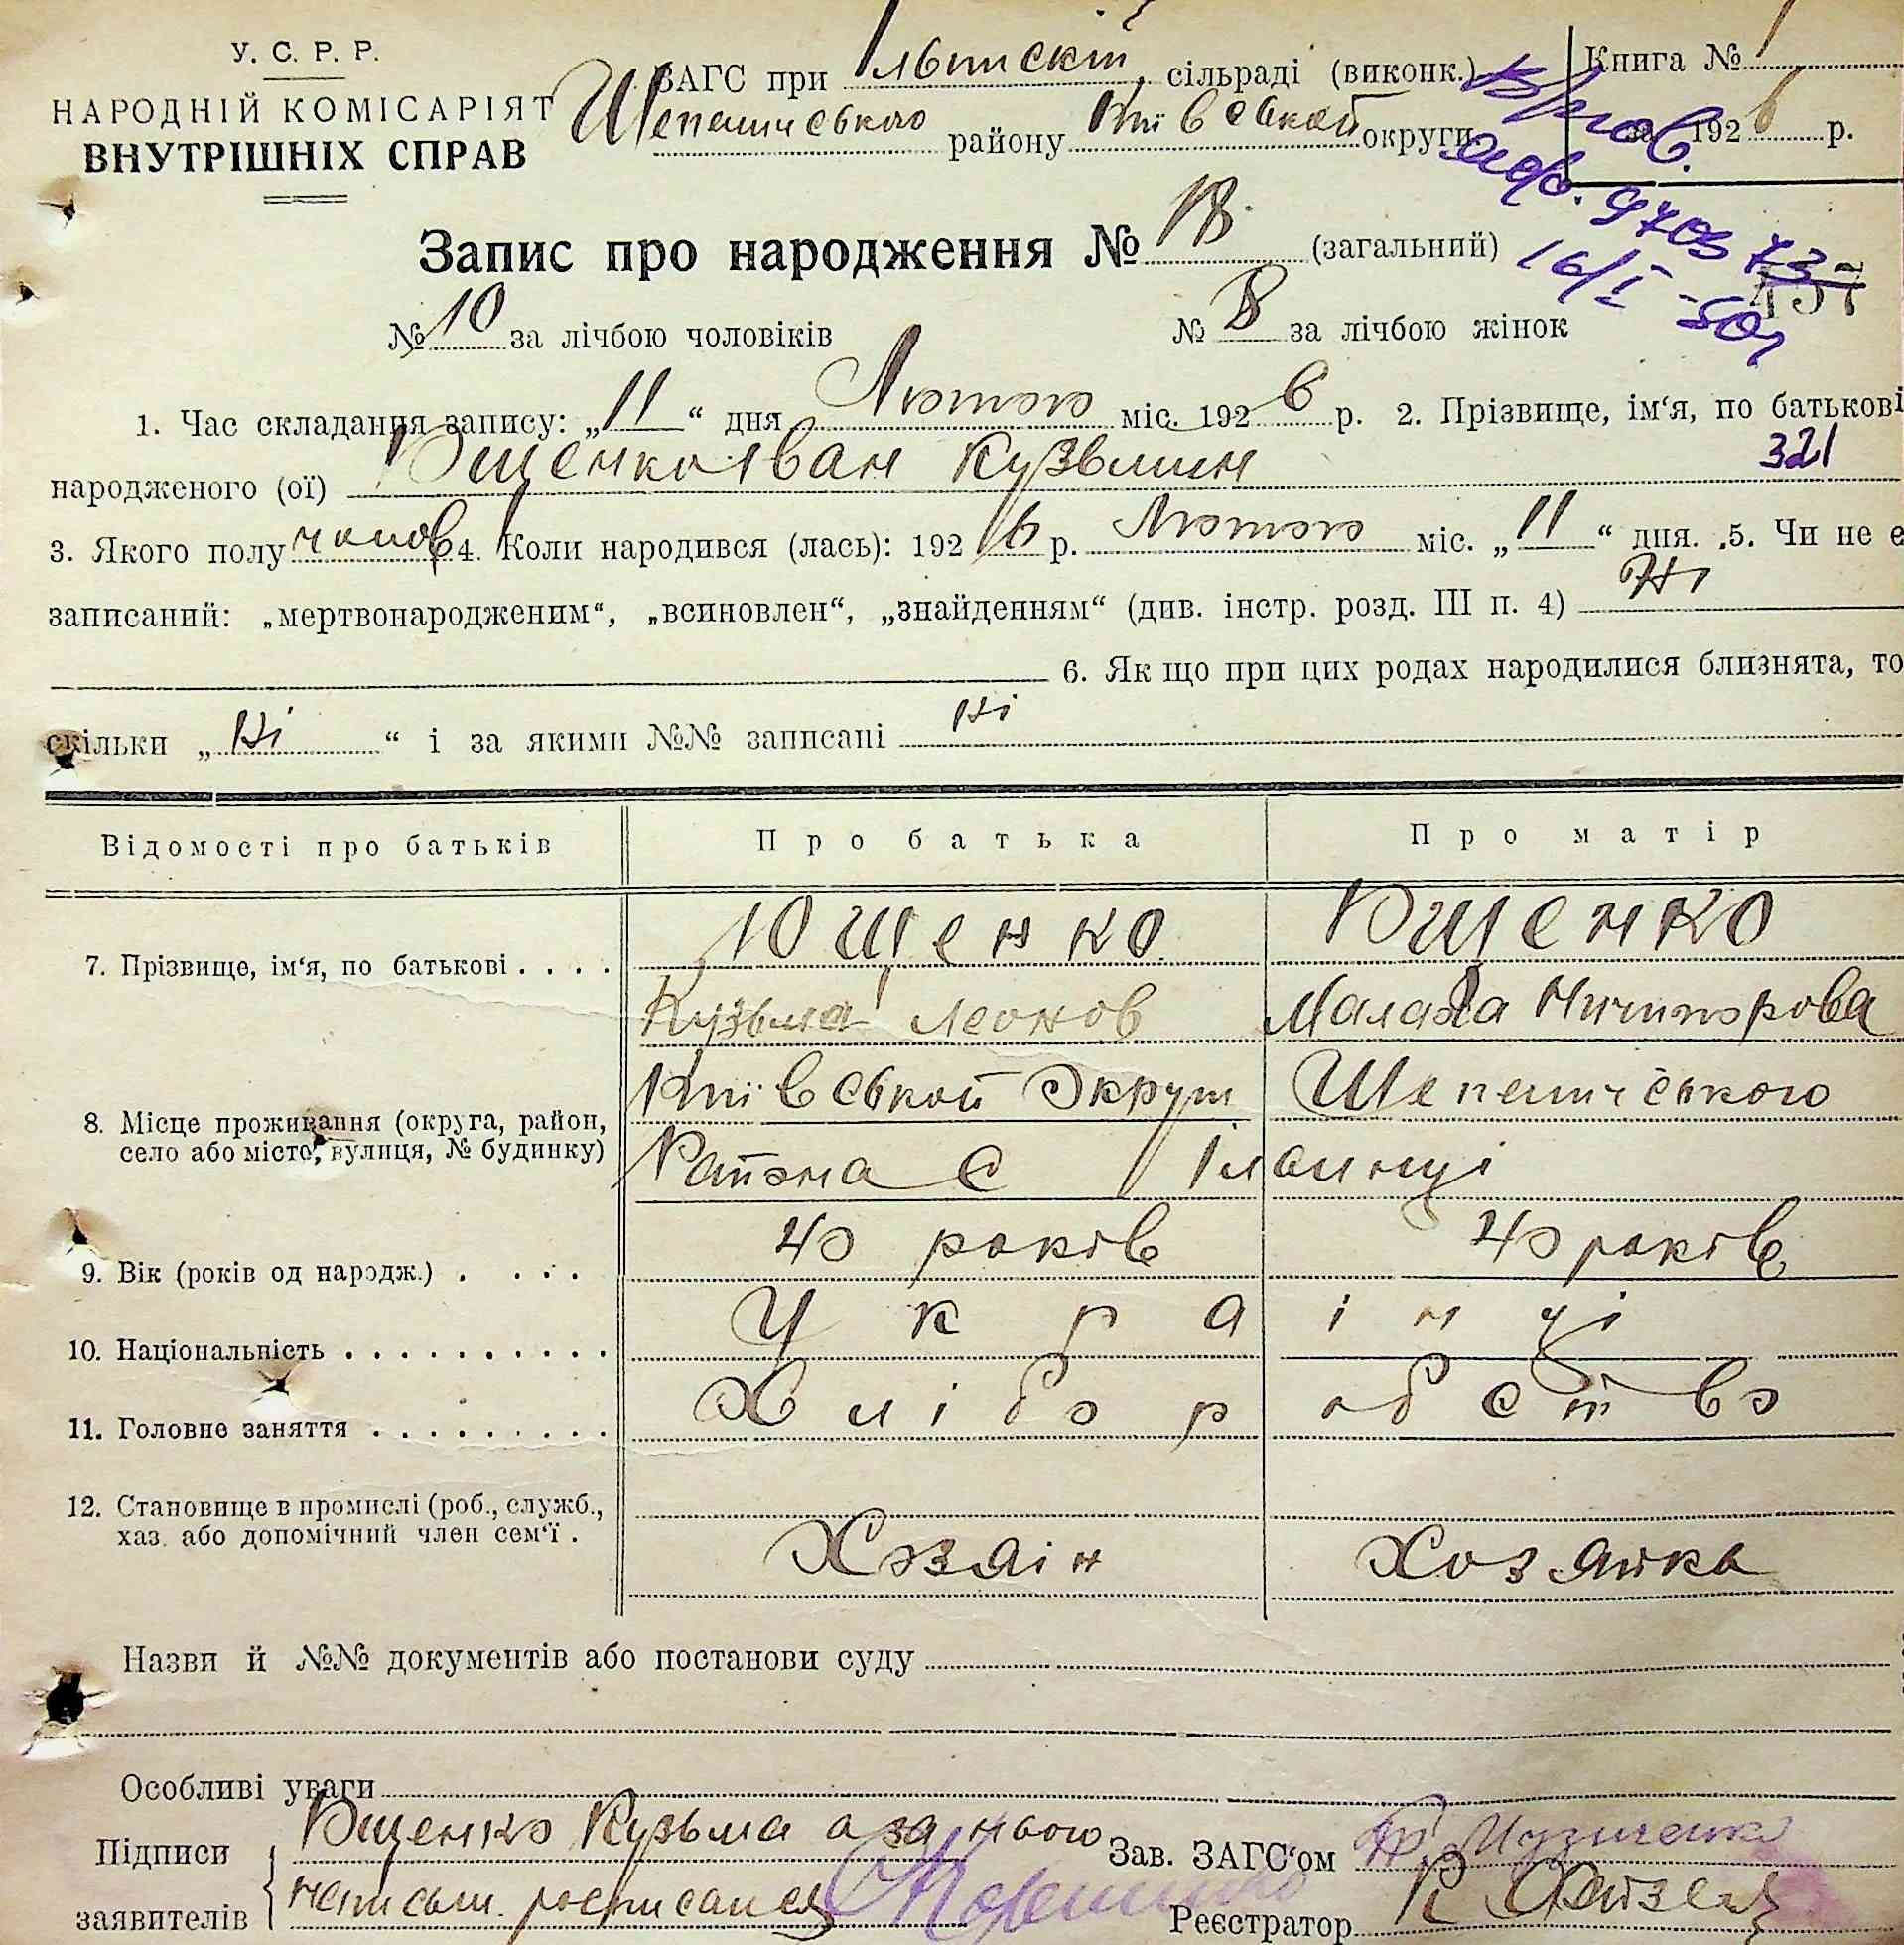 У. С. Р. Р.
НАРОДНІЙ КОМІСАРІЯТ
ВНУТРІШНІХ СПРАВ
ЗАГС при сільраді (виконк.)
району Київської округи
Книга № 1
за 1926 р.
Запис про народження № 18 (загальний)
16/I - 50
№ 10 за лічбою чоловіків № 8 за лічбою жінок
1. Час складання запису: „11“ дня Лютого міс. 1926 р. 2. Прізвище, ім‘я, по батькові
321
народженого (ої) Ющенко Іван Кузьмин
3. Якого полу чолов 4. Коли народився (лась): 1926 р. Лютого міс. „11“ дня. 5. Чи не є
записаний: „мертвонародженим“, „всиновлен“, „знайденням“ (див. інстр. розд. III п. 4) Ні
6. Як що при цих родах народилися близнята, то
скільки „Ні“ і за якими №№ записані Ні
Відомості про батьків Про батька Про матір
7. Прізвище, ім‘я, по батькові . . . . Ющенко Ющенко
Кузьма Леонов Малаха Ничипорова
8. Місце проживання (округа, район, село або місто, вулиця, № будинку) Київської Округи
Района с Ілінці
9. Вік (років од народж.) . . . . 40 років 40 років
10. Національність . . . . . . . . . . Українці
11. Головне заняття . . . . . . . . . Хліборобство
12. Становище в промислі (роб., служб.,
хаз. або допомічний член сем‘ї . Хозяін Хозяйка
Назви й №№ документів або постанови суду
Особливі уваги
Підписи Ющенко Кузьма а за нього Зав. ЗАГС‘ом
заявителів росписався Реєстратор